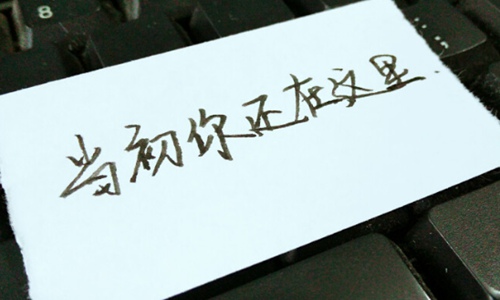 8
当初你正在这里.